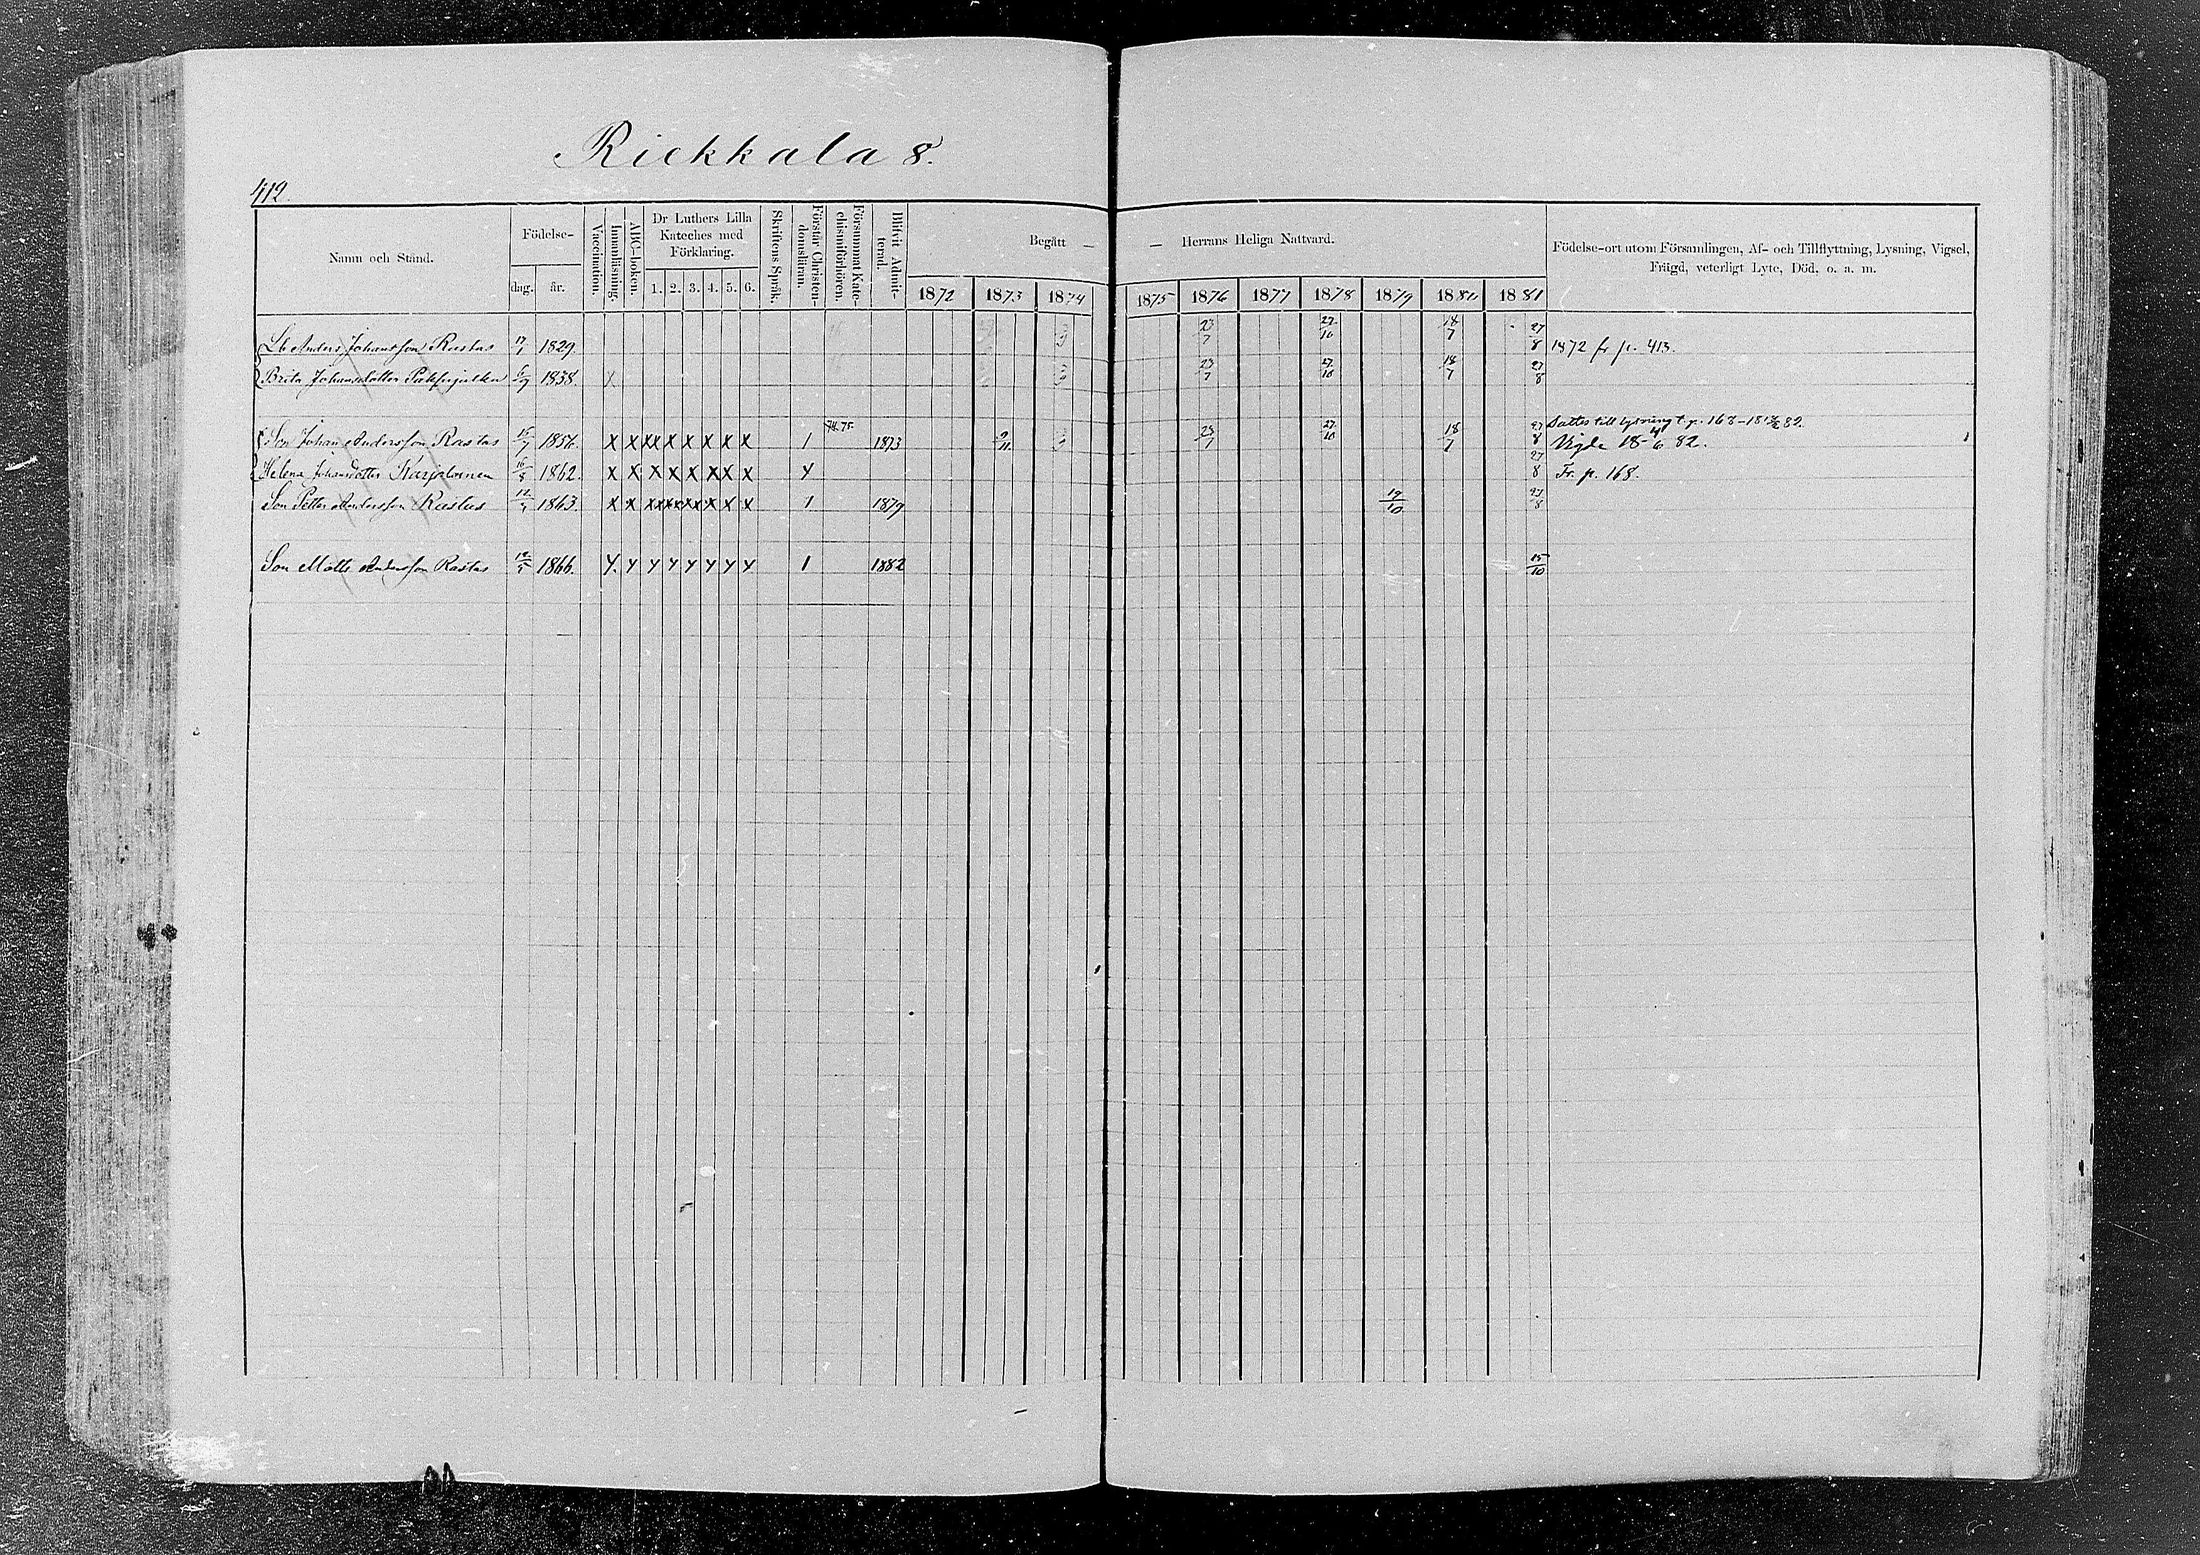 Riekkala 8.
412.
Namn och Stånd.
Födelse-
dag. år.
Vaccination.
Innanläsning.
ABC-boken.
Dr Luthers Lilla
Kateches med
Förklaring.
1. 2. 3. 4. 5. 6.
Skriftens Språk.
Förstår Christen-
domsläran.
Försummat Kate-
chismiförhören.
Blifvit Admit-
terad.
Begått — — Herrans Heliga Nattvard.
1872 1873 1874 1875 1876 1877 1878 1879 1880 1881
Födelse-ort utom Församlingen, Af- och Tillflyttning, Lysning, Vigsel,
Frägd, veterligt Lyte, Död, o. a. m.
Lb Anders Johansson Rastas 17/1 1829. 23/7 27/10 18/7 27/8 1872 fr p. 413.
Brita Johansdotter 6/7 1838. X 23/7 27/10 18/7 27/8
Son Johan Andersson Rastas 15/7 1856. X X X X X X X X X 1 74.75. 1873 9/11 23/7 27/10 18/7 27/8 Sattes till lysning t. p. 168 - 82.
Vigde 18 4/6 82.
Helena Johansdotter Karjalainen 1862. X X X X X X X X X 27/8 Fr. p. 168.
Son Petter Andersson Rastas 1863. X X X X X X X X 1 1879 19/10 27/8
Son Matts Andersson Rastas 1866. 1 1882 15/10